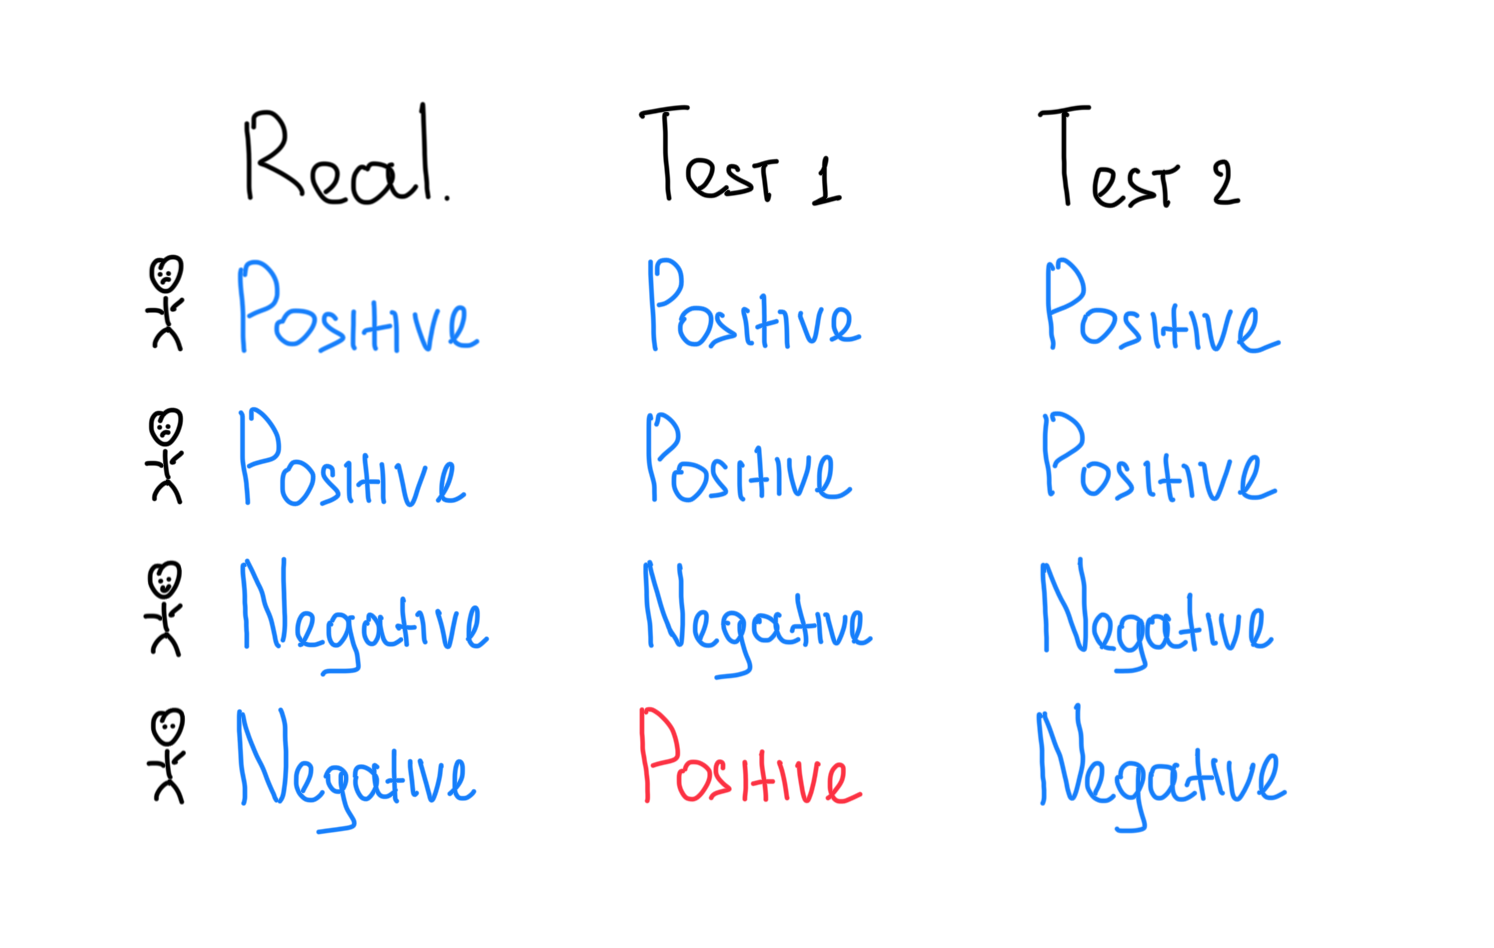 Real. Test 1 Test 2
Positive Positive Positive
Positive Positive Positive
Negative Negative Negative
Negative Positive Negative